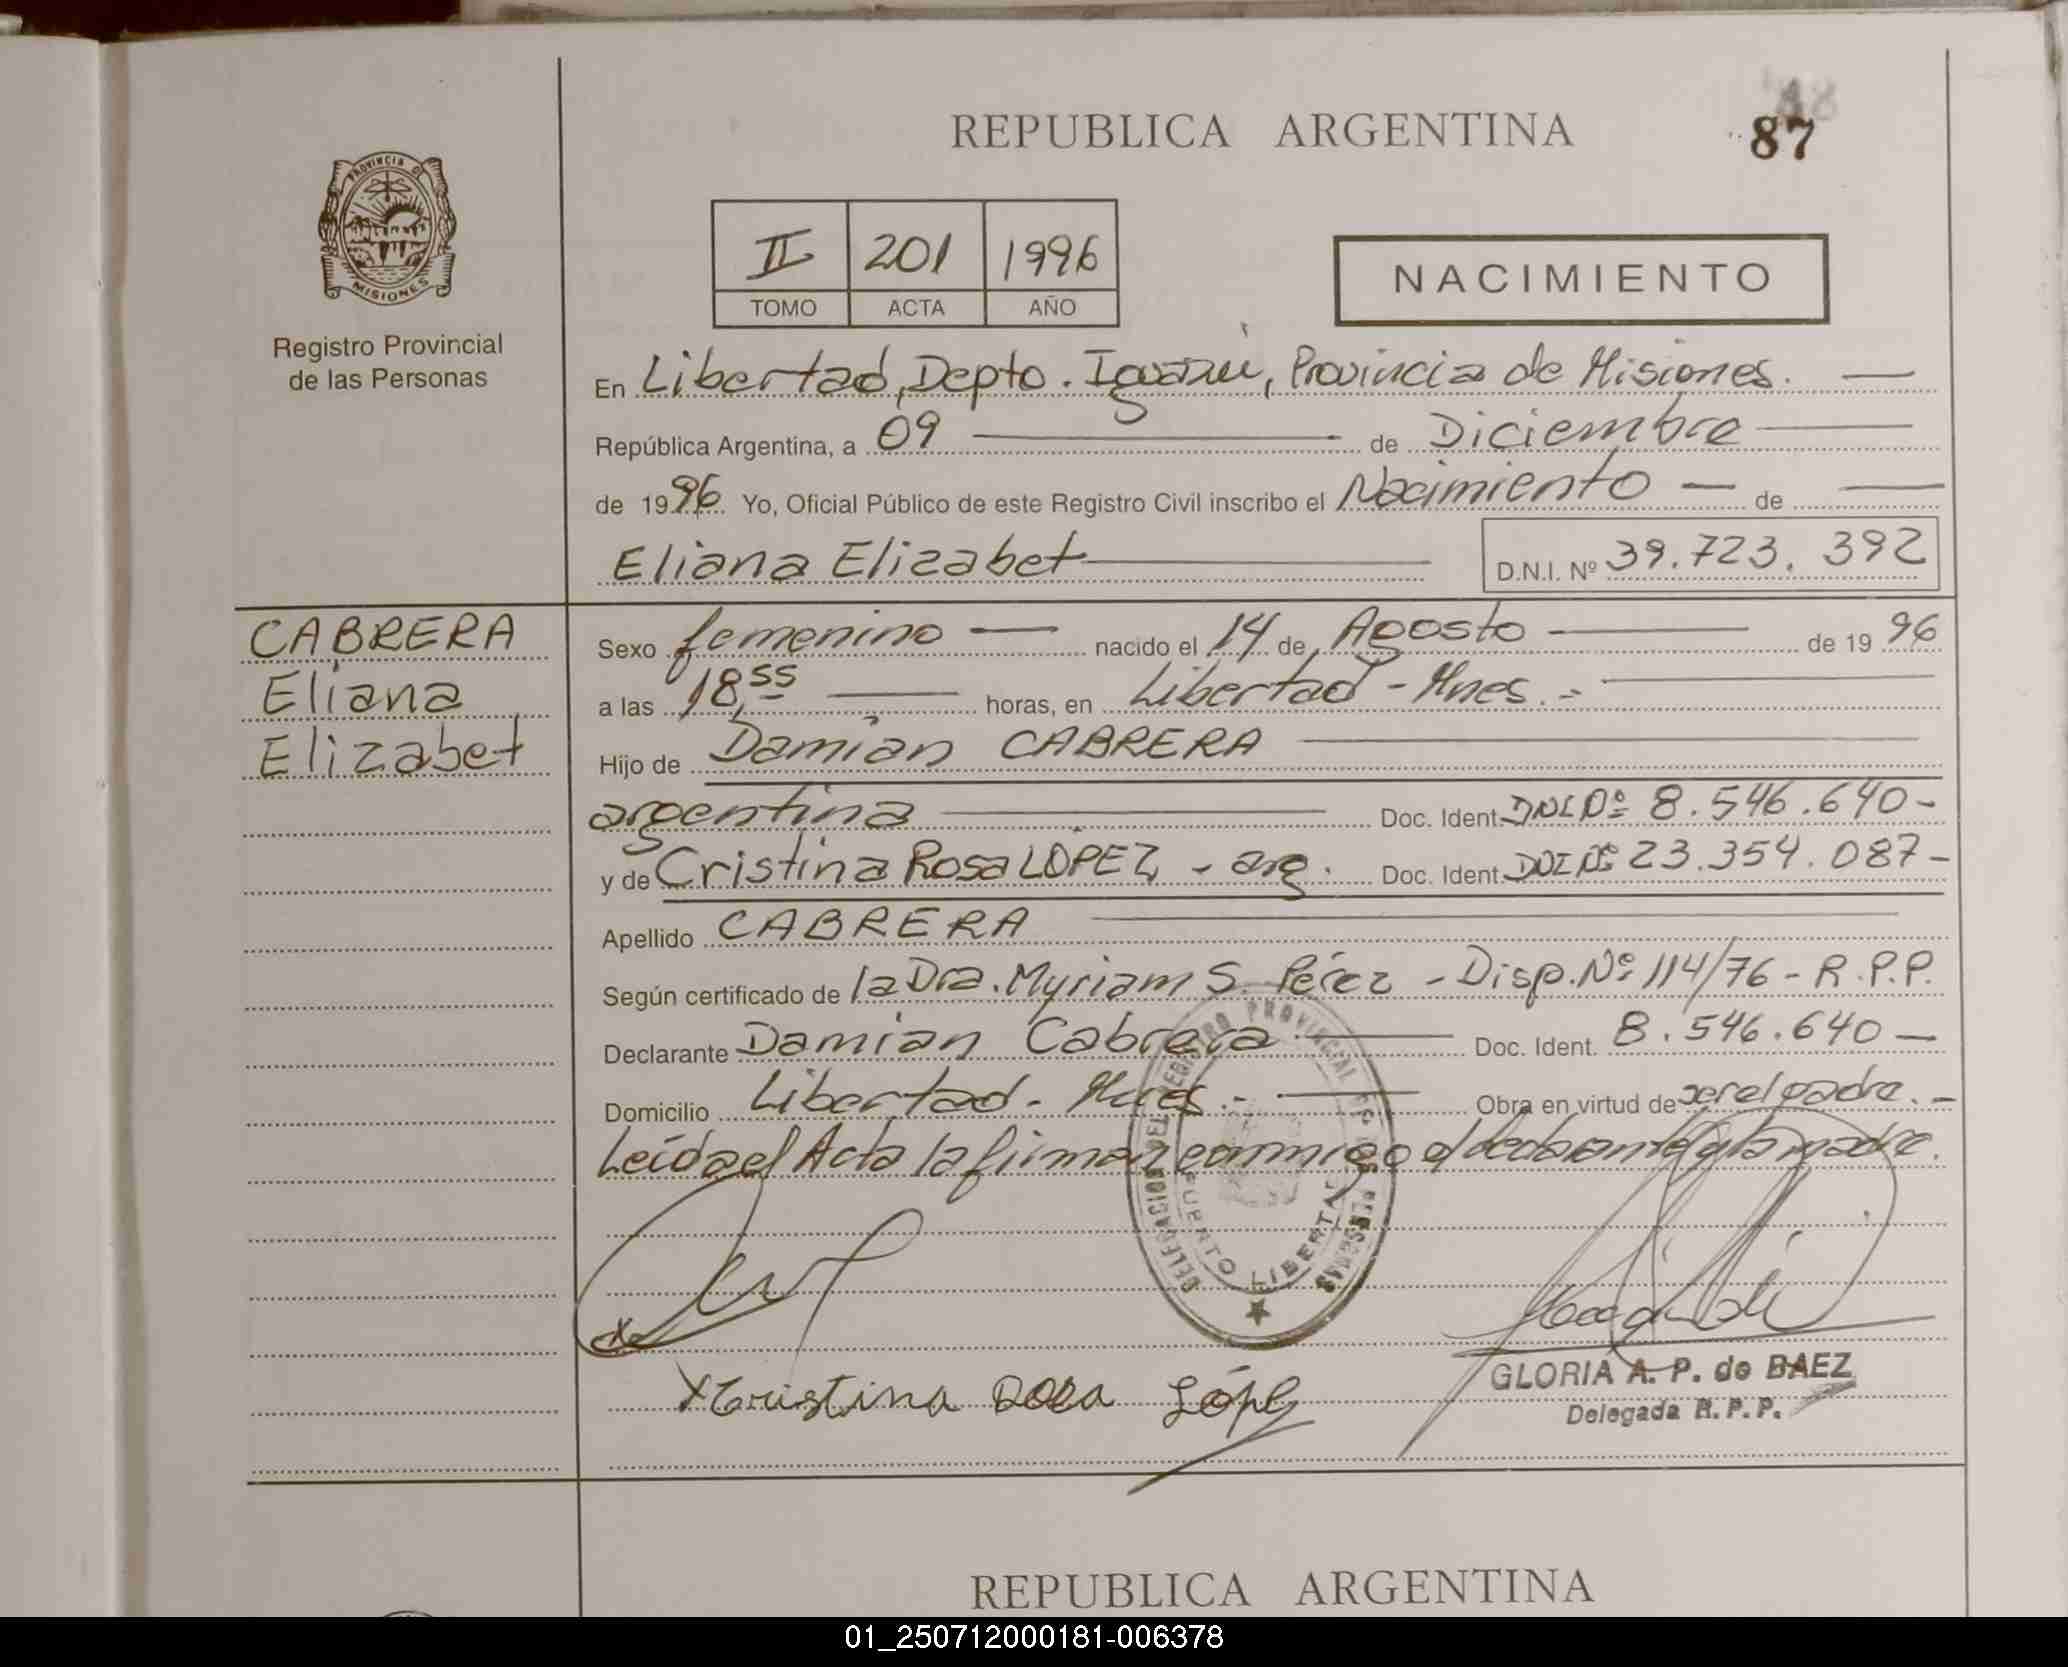 REPUBLICA ARGENTINA
87
PROVINCIA DE
MISIONES
Registro Provincial
de las Personas
II 201 1996
TOMO ACTA AÑO
NACIMIENTO
En Libertad, Depto. Iguazú, Provincia de Misiones.
República Argentina, a 09 de Diciembre
de 1996 Yo, Oficial Público de este Registro Civil inscribo el Nacimiento de
Eliana Elizabet D.N.I. Nº 39.723.392
CABRERA
Eliana
Elizabet
Sexo femenino nacido el 14 de Agosto de 1996
a las 18,55 horas, en Libertad - Mnes. -
Hijo de Damián CABRERA
argentina Doc. Ident. DNI Nº 8.546.640-
y de Cristina Rosa LOPEZ, - arg. Doc. Ident. DNI Nº 23.354.087-
Apellido CABRERA
Según certificado de la Dra. Myriam S. Pérez - Disp. Nº 114/76 - R.P.P.
Declarante Damian Cabrera Doc. Ident. 8.546.640
Domicilio Libertad - Mnes. - Obra en virtud de ser el padre.
Leída el Acta la firman conmigo el declarante y la madre.
DELEGACION DEL REGISTRO PROVINCIAL DE LAS PERSONAS
PUERTO LIBERTAD
X
X Cristina Rosa López
GLORIA A. P. de BAEZ
Delegada R.P.P.
REPUBLICA ARGENTINA
01_250712000181-006378